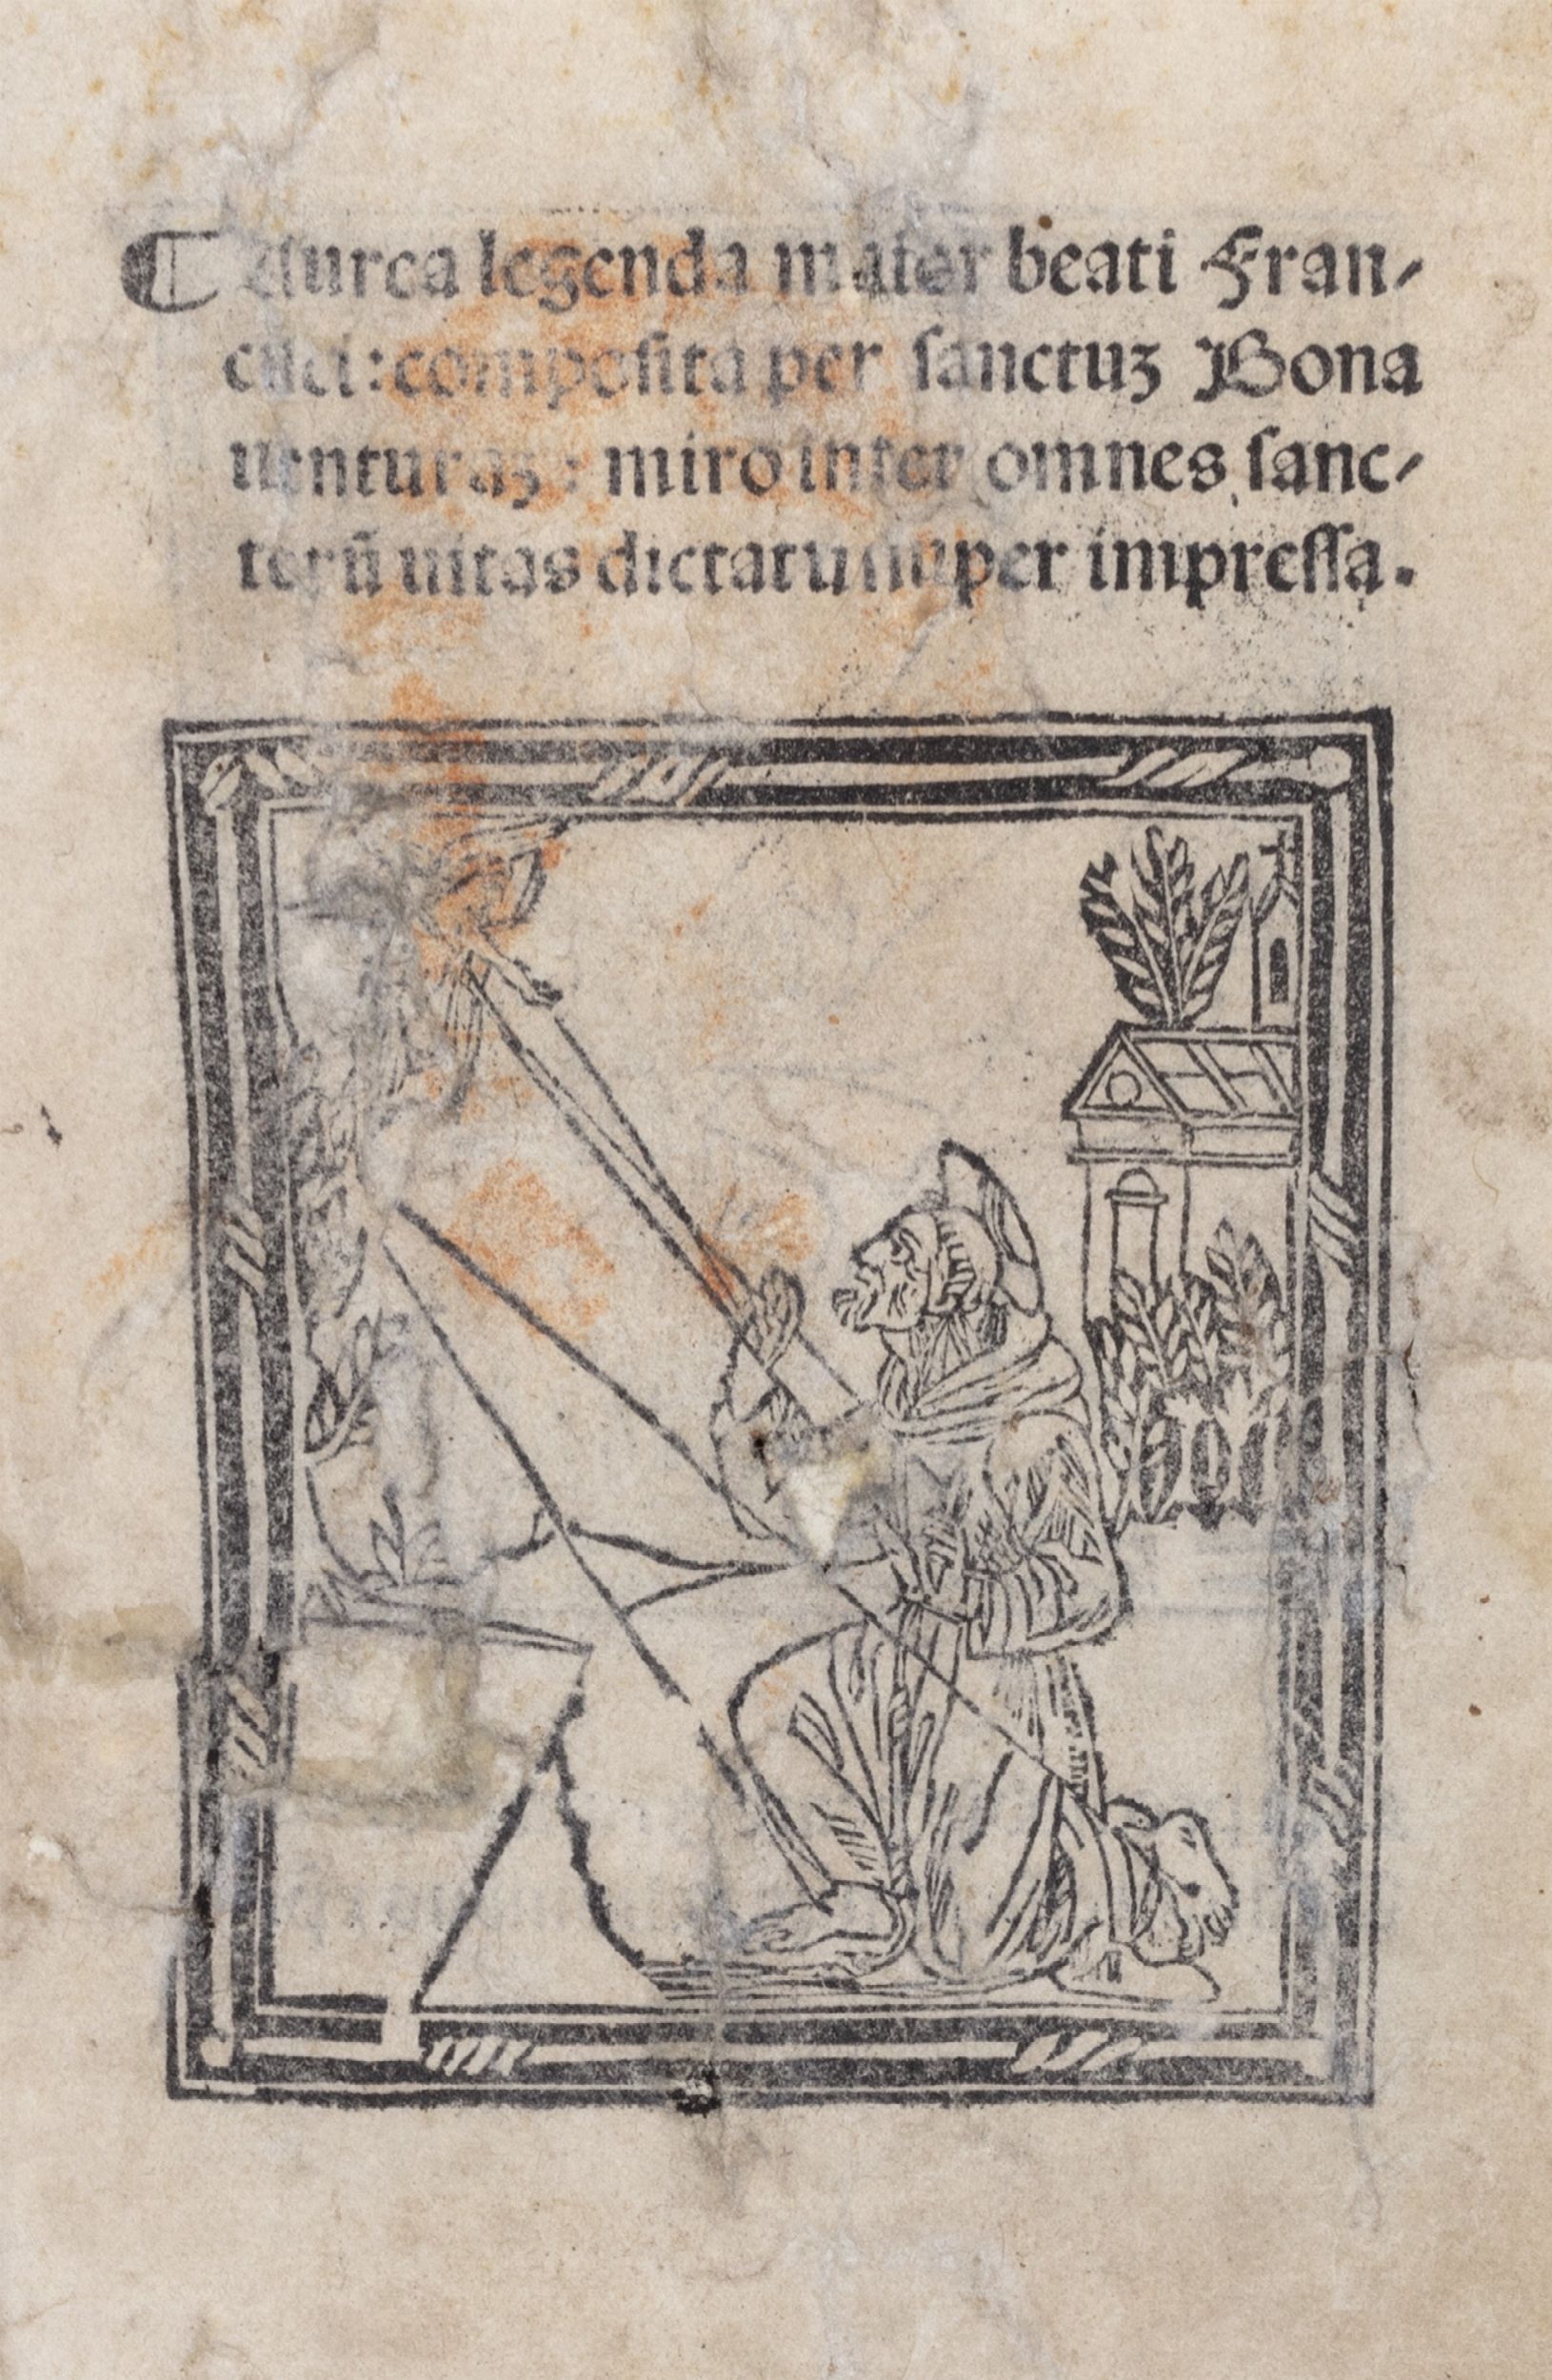 ¶ Aurea legenda maior beati Fran-
ciſci: compoſita per ſanctuz Bona
uenturaz: miro inter omnes ſanc-
torū uitas dictatu nuper impreſſa.